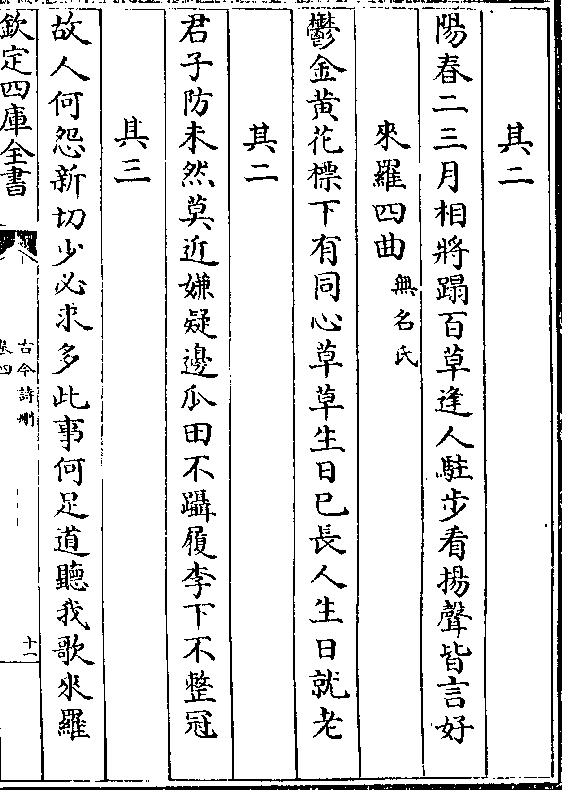 其二
陽春二三月相將蹋百草逢人駐步看揚聲皆言好
來羅四曲無名氏
鬱金黄花標下有同心草草生日已長人生日就老
其二
君子防未然莫近嫌疑邊瓜田不躡履李下不整冠
其三
故人何怨新切少必求多此事何足道聽我歌來羅
欽定四庫全書
古今詩刪
卷四
十一